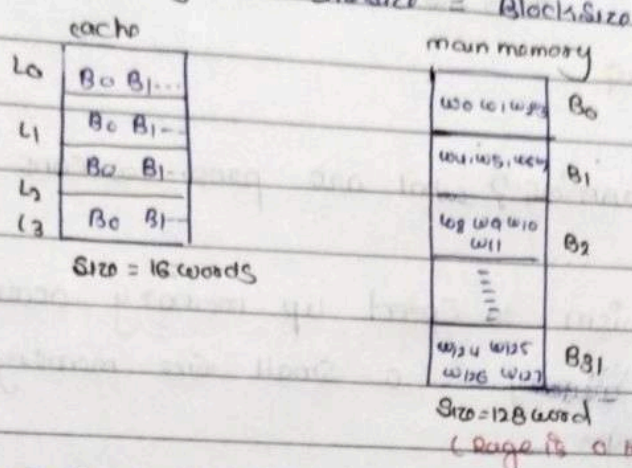 = Block Size
cache
L0 B0 B1...
L1 B0 B1--
L2 B0 B1
L3 B0 B1--
Size = 16 words
main memory
w0 w1 B0
B1
w8 w9 w10
w11 B2
w124 w125
w126 w127 B31
Size = 128 word
(Page is